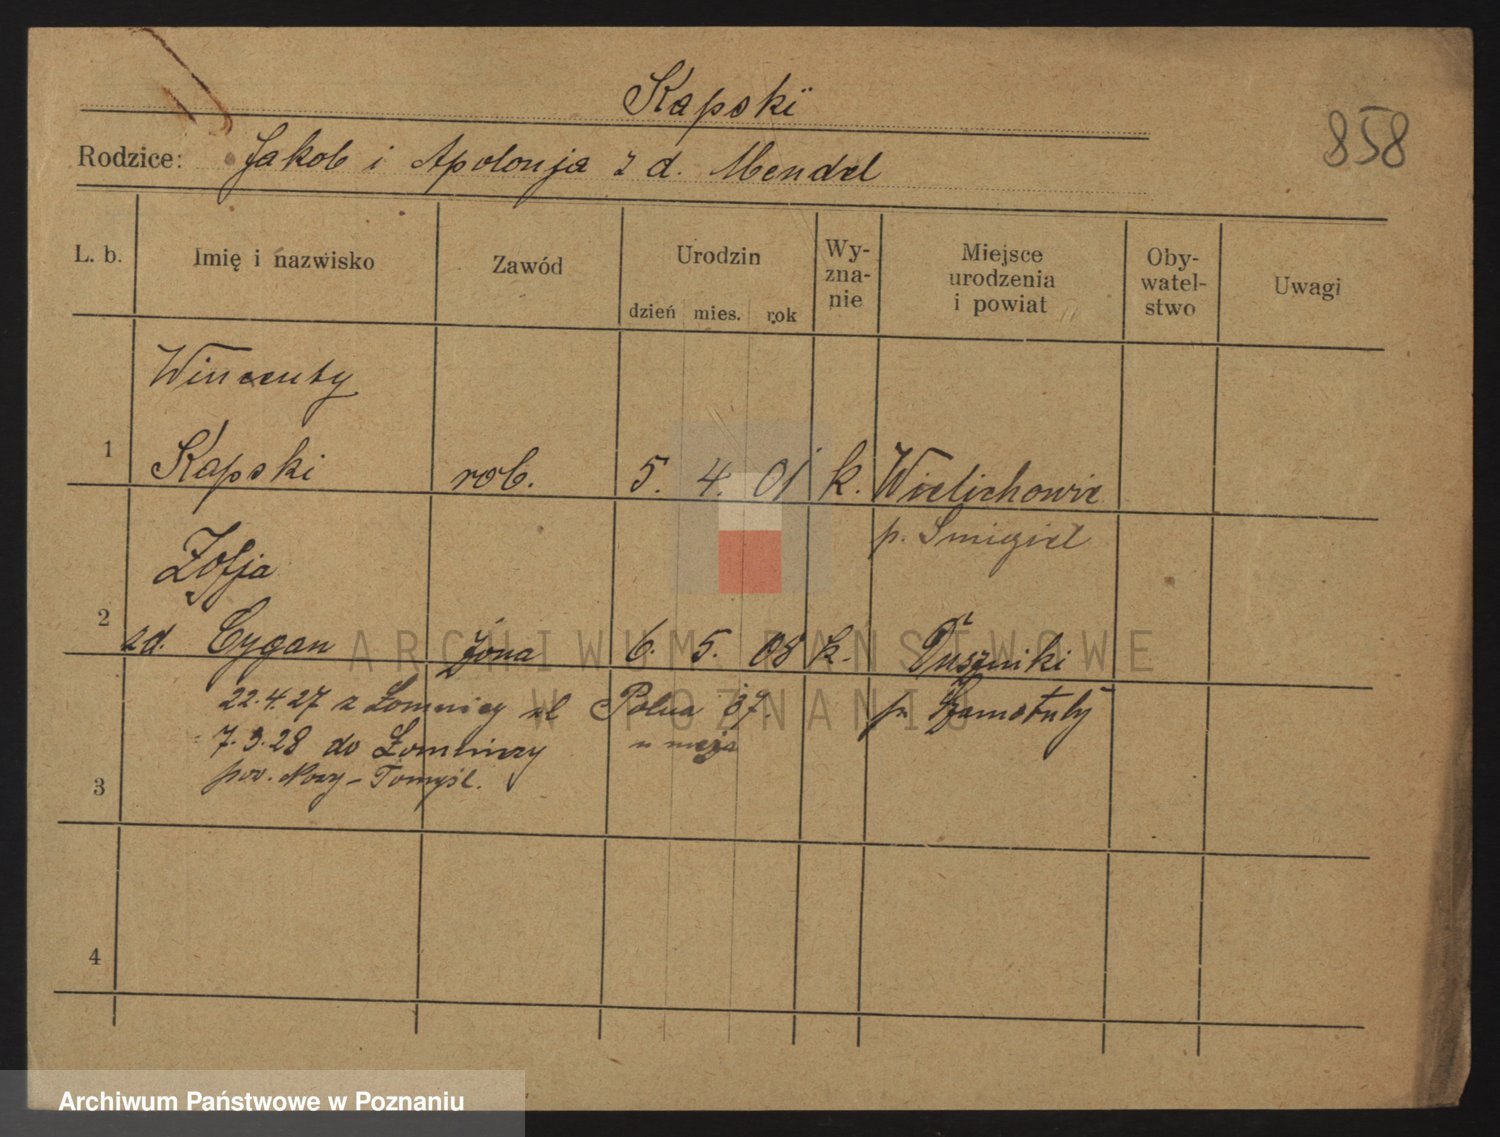 Kapski
858
Rodzice: Jakob i Apolonja z d. Mendel
L. b. Imię i nazwisko Zawód Urodzin dzień mies. rok Wy-zna-nie Miejsce urodzenia i powiat Oby-watel-stwo Uwagi
Wincenty
1 Kapski rob. 5. 4. 01 k. Wielichowie
p. Smigiel
Zofja
2 zd. Cygan żona 6. 5. 08 k. Duszniki
22.4.27 z Łomnicy ul Polna 37. p. Szamotuły
7.3.28 do Łomnicy
pow. Nowy-Tomyśl.
3
4
ARCHIWUM PAŃSTWOWE
W POZNANIU
Archiwum Państwowe w Poznaniu